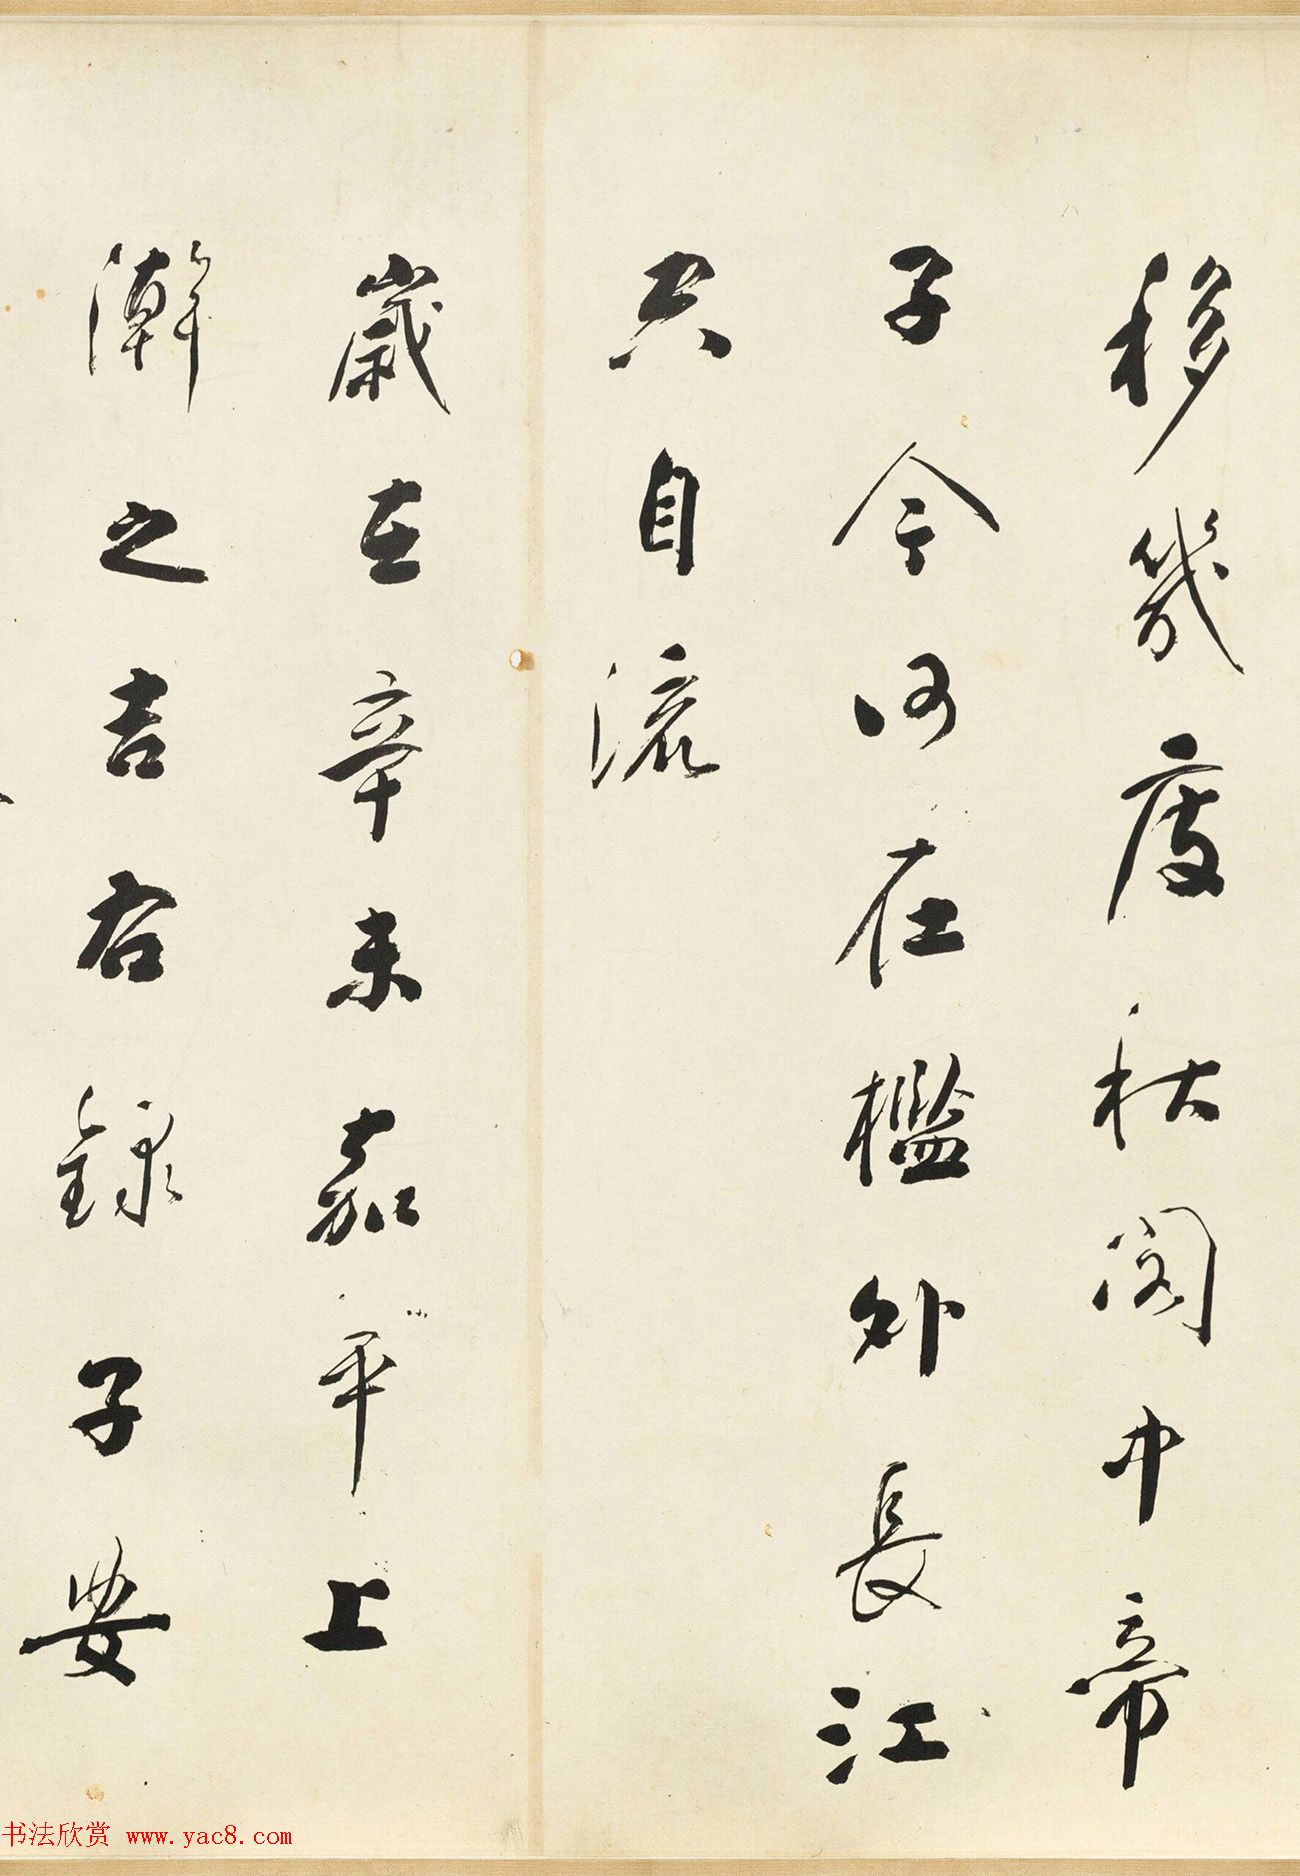 移幾度秋閣中帝
子今何在檻外長江
空自流
歲在辛未嘉平上
澣之吉右錄子安
书法欣赏 www.yac8.com